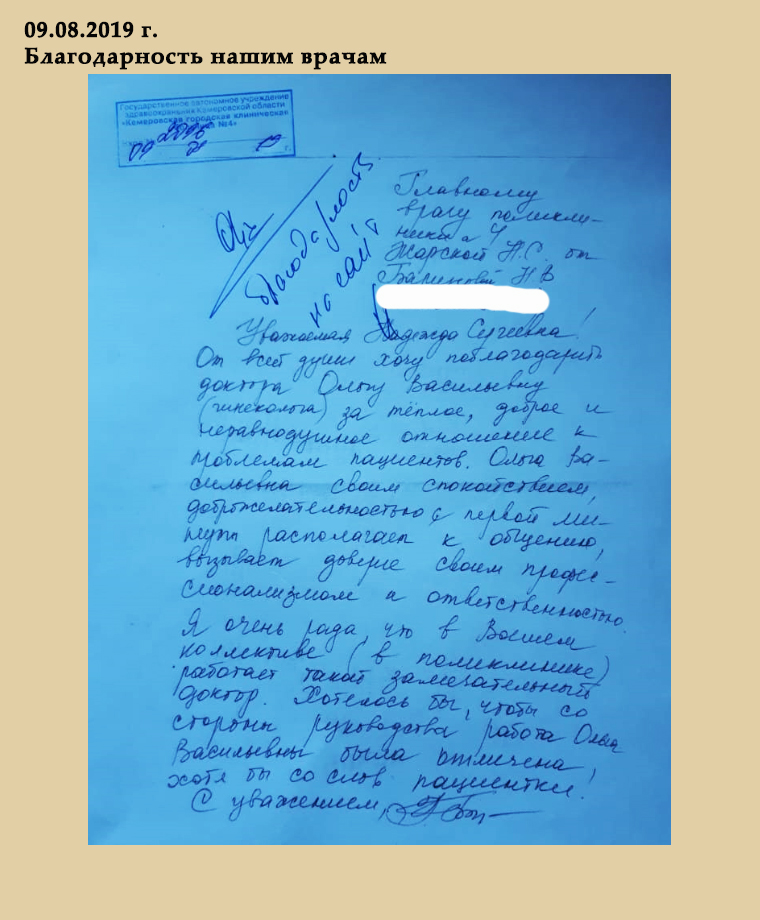 09.08.2019 г.
Благодарность нашим врачам
Государственное автономное учреждение
здравоохранения Кемеровской области
«Кемеровская городская клиническая
№4»
09 19 г.
Благодарность
на сайт
Главному
врачу поликли-
ники 4
Жарской Н.С. от
Н.В
Уважаемая Надежда Сергеевна!
От всей души хочу поблагодарить
доктора Ольгу Васильевну
(гинеколога) за тёплое, доброе и
неравнодушное отношение к
проблемам пациентов. Ольга Ва-
сильевна своим спокойствием,
доброжелательностью с первой ми-
нуты располагает к общению,
вызывает доверие своим профес-
сионализмом и ответственностью.
Я очень рада, что в Вашем
коллективе (в поликлинике)
работает такой замечательный
доктор. Хотелось бы, чтобы со
стороны руководства работа Ольги
Васильевны была отмечена
хотя бы со слов пациентки!
С уважением,